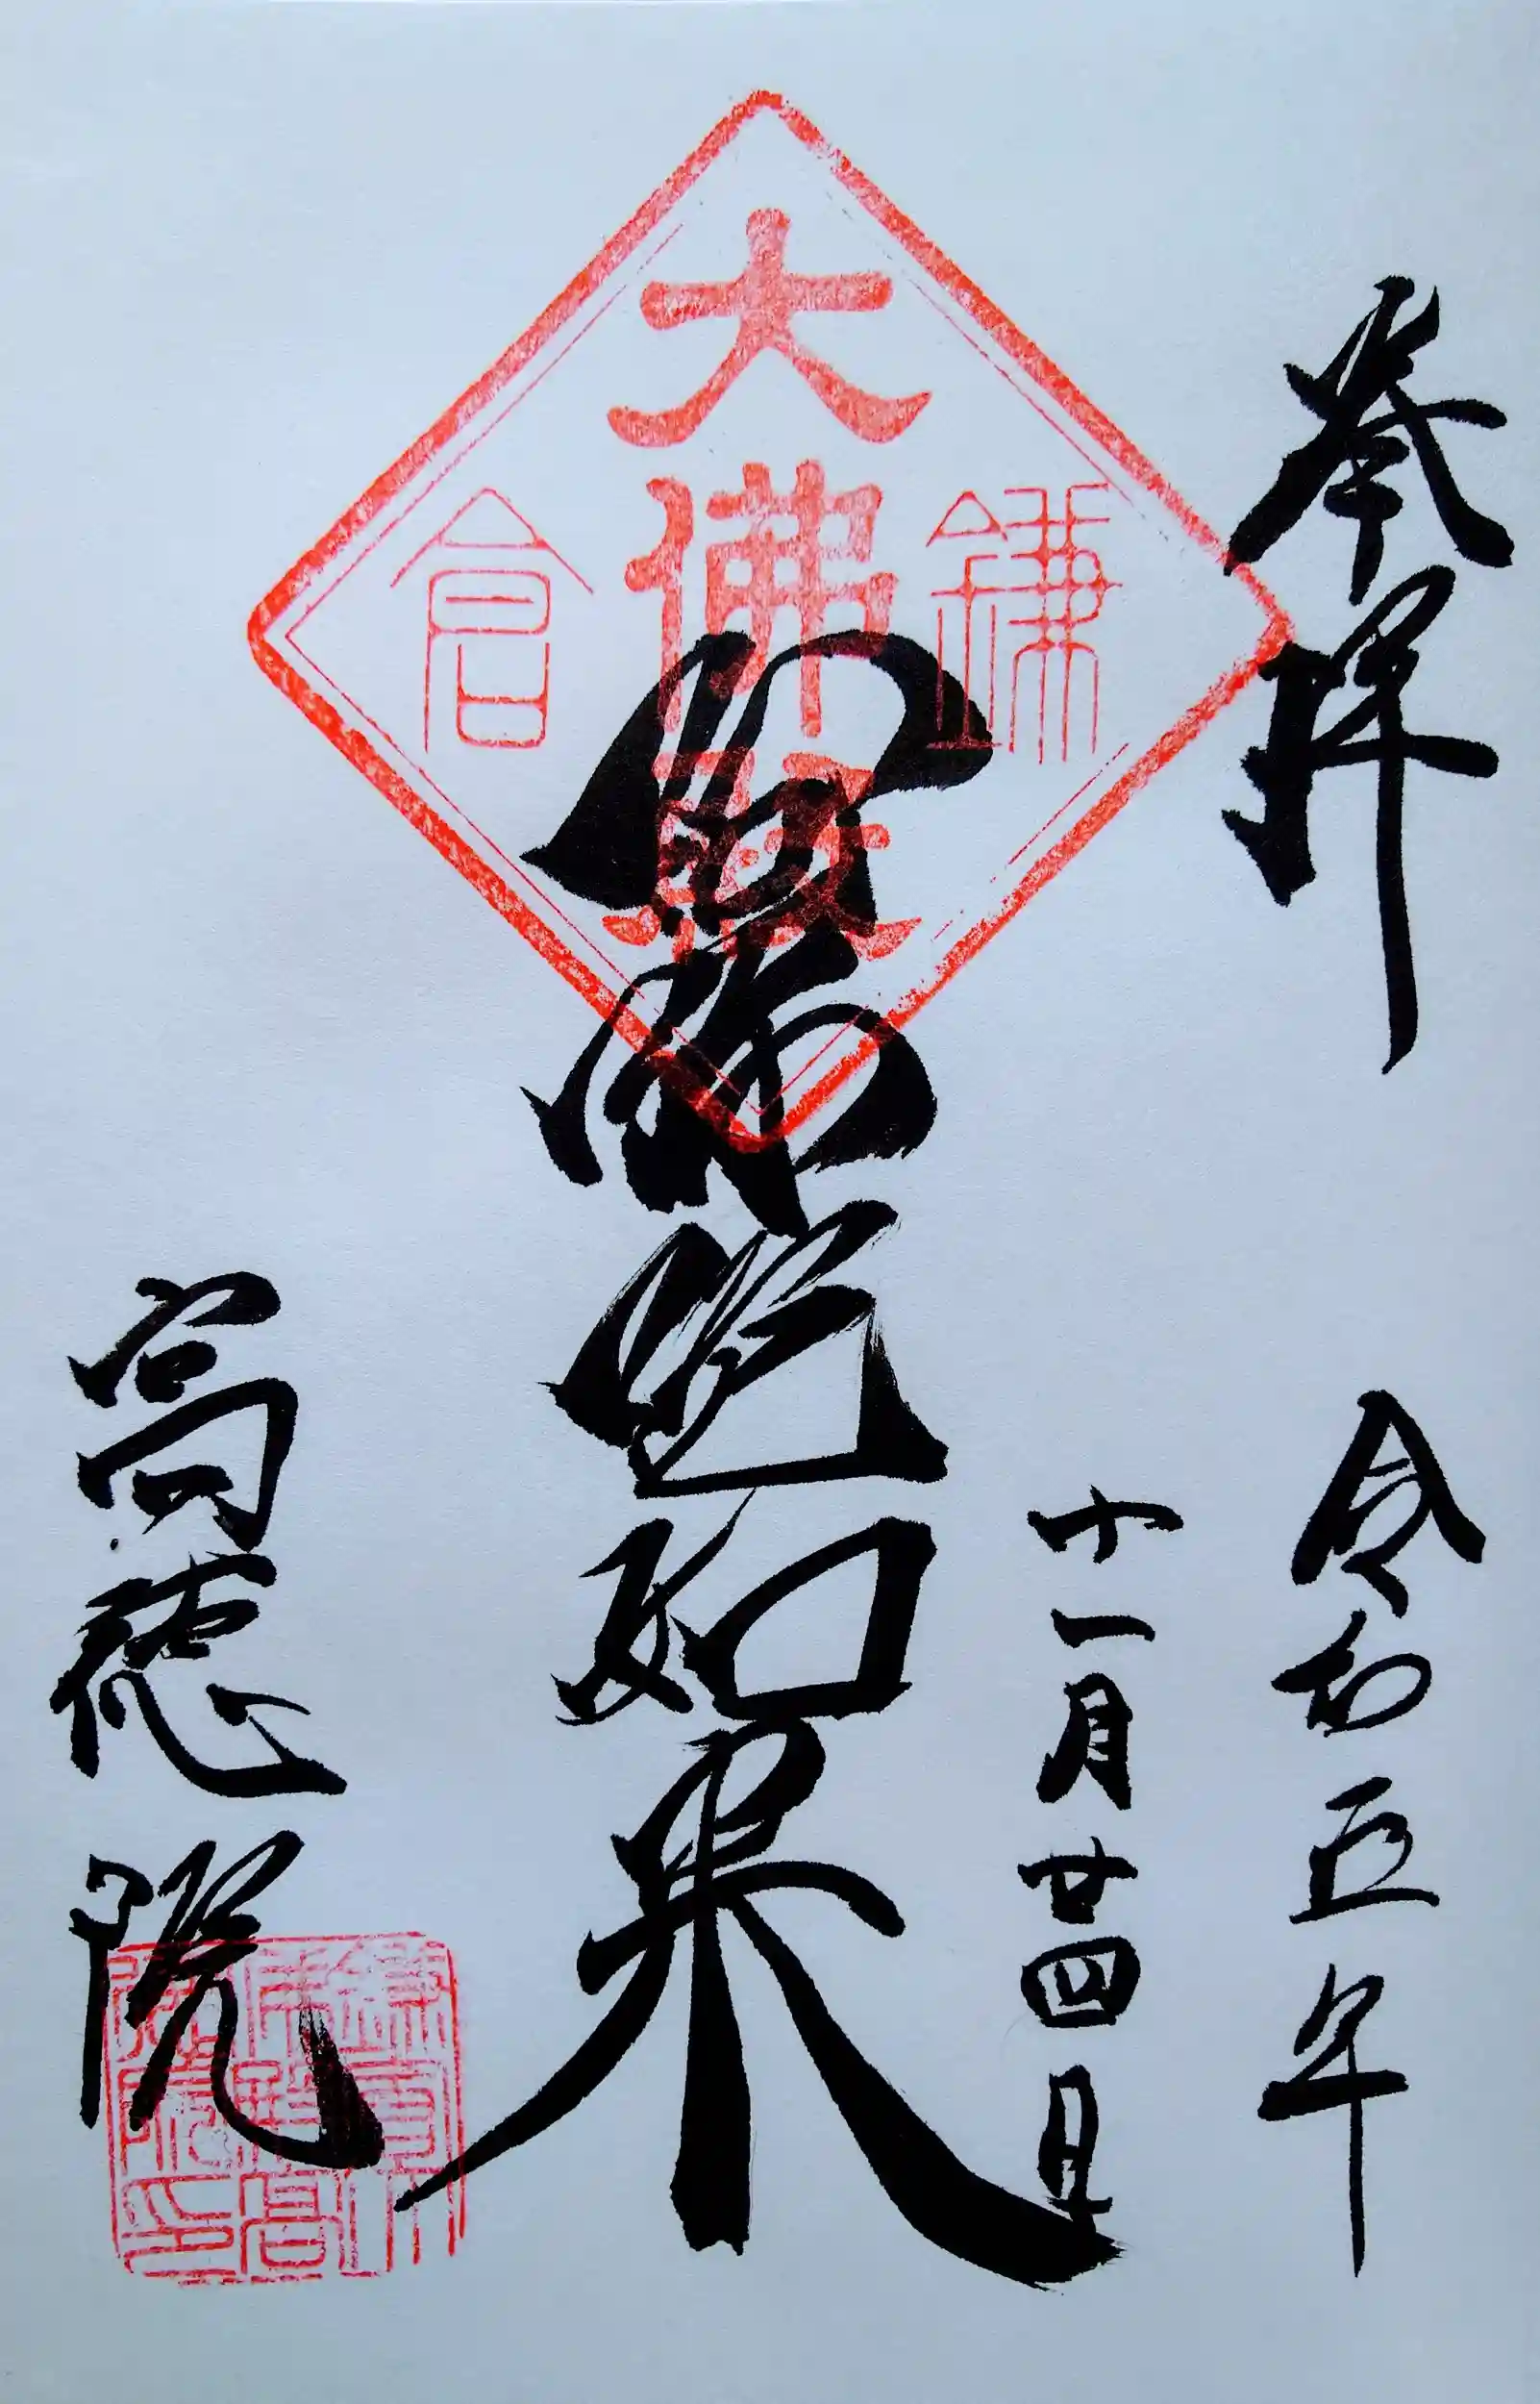 奉拝
令和五年
十一月廿四日
鎌倉
大佛殿
阿弥陀如来
高徳院